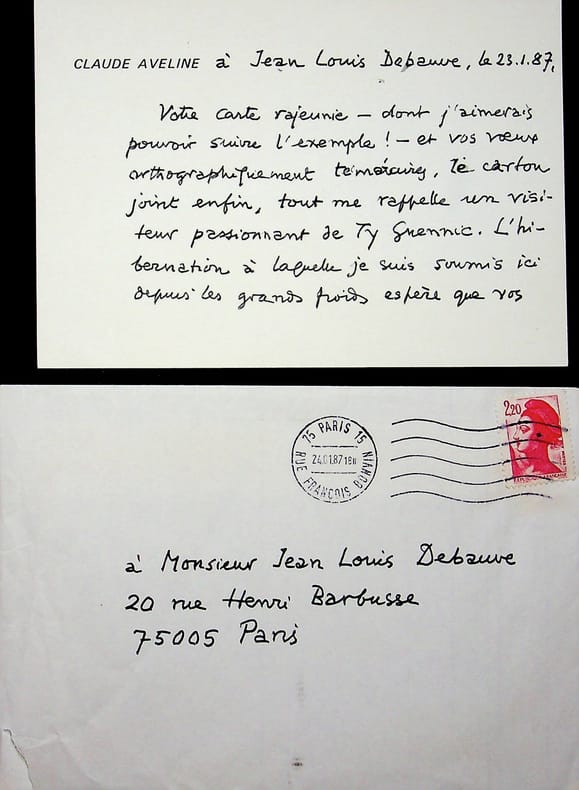 CLAUDE AVELINE à Jean Louis Debauve, le 23.1.87,
Votre carte rajeunie – dont j'aimerais
pouvoir suivre l'exemple ! – et vos vœux
orthographiquement téméraires, le carton
joint enfin, tout me rappelle un visi-
teur passionnant de Ty Guennic. L'hi-
bernation à laquelle je suis soumis ici
depuis les grands froids espère que vos
75 PARIS 15
24.01.87 18H
RUE FRANÇOIS BONVIN
2,20
à Monsieur Jean Louis Debauve
20 rue Henri Barbusse
75005 Paris